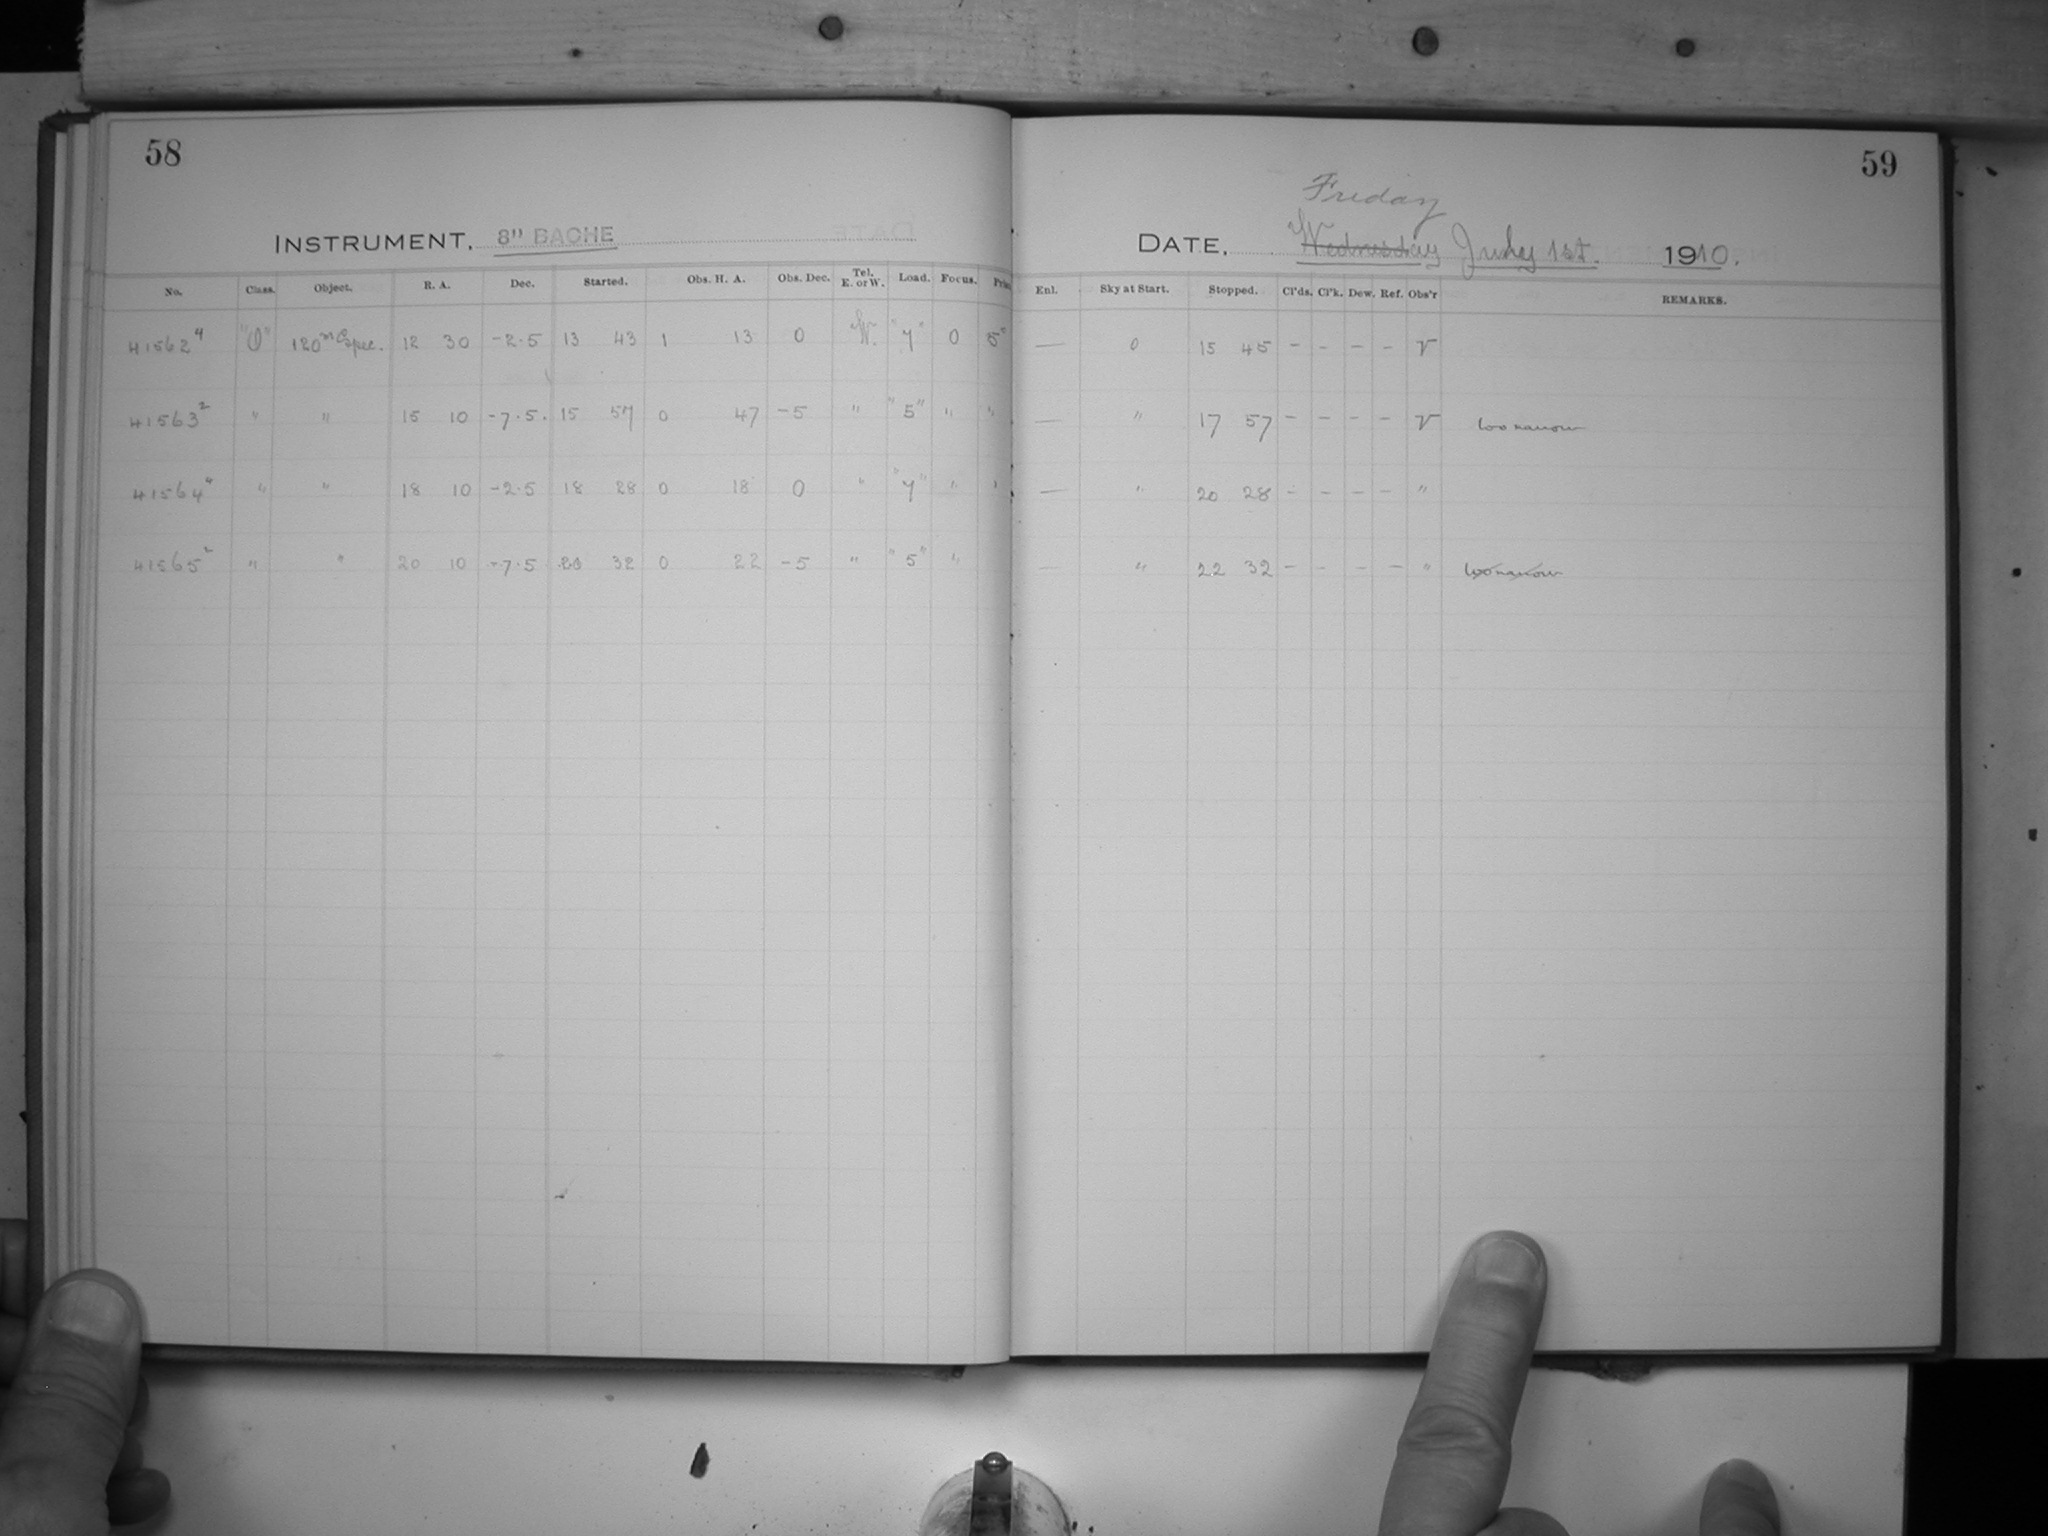 58
59
INSTRUMENT. 8" BACHE
Friday
DATE. Wednesday July 1st. 1910.
No. Class. Object. R. A. Dec. Started. Obs. H. A. Obs. Dec. Tel. E. or W. Load. Focus. Enl. Sky at Start. Stopped. Cl'ds. Cl'k. Dew. Ref. Obs'r REMARKS.
41562 4 "O" 120m Spec. 12 30 -2.5 13 43 1 13 0 W. "Y" 0 5" — 0 15 45 - - - - V
41563 2 " " 15 10 -7.5. 15 57 0 47 -5 " "5" " " — " 17 57 - - - - V too narrow
41564 4 " " 18 10 -2.5 18 28 0 18 0 " "Y" " " — " 20 28 - - - - "
41565 2 " " 20 10 -7.5 20 32 0 22 -5 " "5" " — " 22 32 - - - - " too narrow